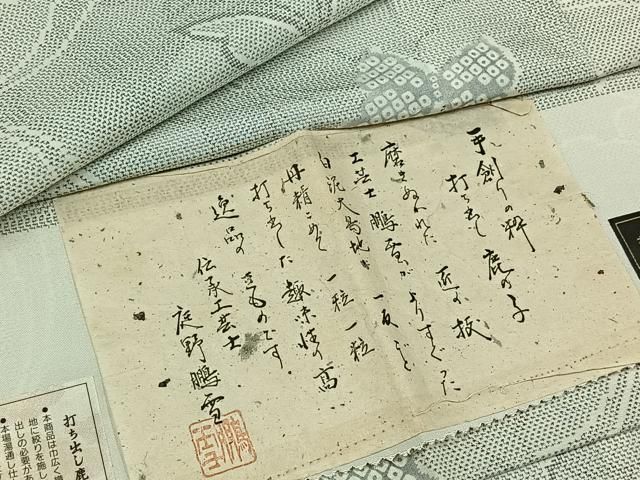 手創りの粋 鹿の子
打ち出し 匠の技
磨きぬかれた よりすぐった
工芸士 鵬雪が 一反ごと
白泥大島地に 一粒一粒
丹精こめて 趣味性の高
打ち出した きものです。
逸品の
伝承工芸士
庭野鵬雪
打ち出し鹿
●本商品は巾広く
地に絞りを施し
出しの必要があ
●本場湯通し仕